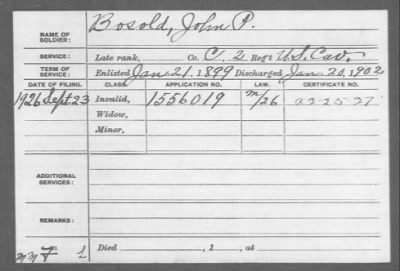 NAME OF SOLDIER: Bosold, John P.
SERVICE: Late rank, Co. C. 2 Reg't U.S. Cav.
TERM OF SERVICE: Enlisted Jan. 21. 1899 Discharged Jan. 20, 1902
DATE OF FILING. CLASS. APPLICATION NO. LAW. CERTIFICATE NO.
1926 Sept. 23 Invalid, 1556019 m/26 a2-25-27
Widow,
Minor,
ADDITIONAL SERVICES:
REMARKS:
Died , 1 , at